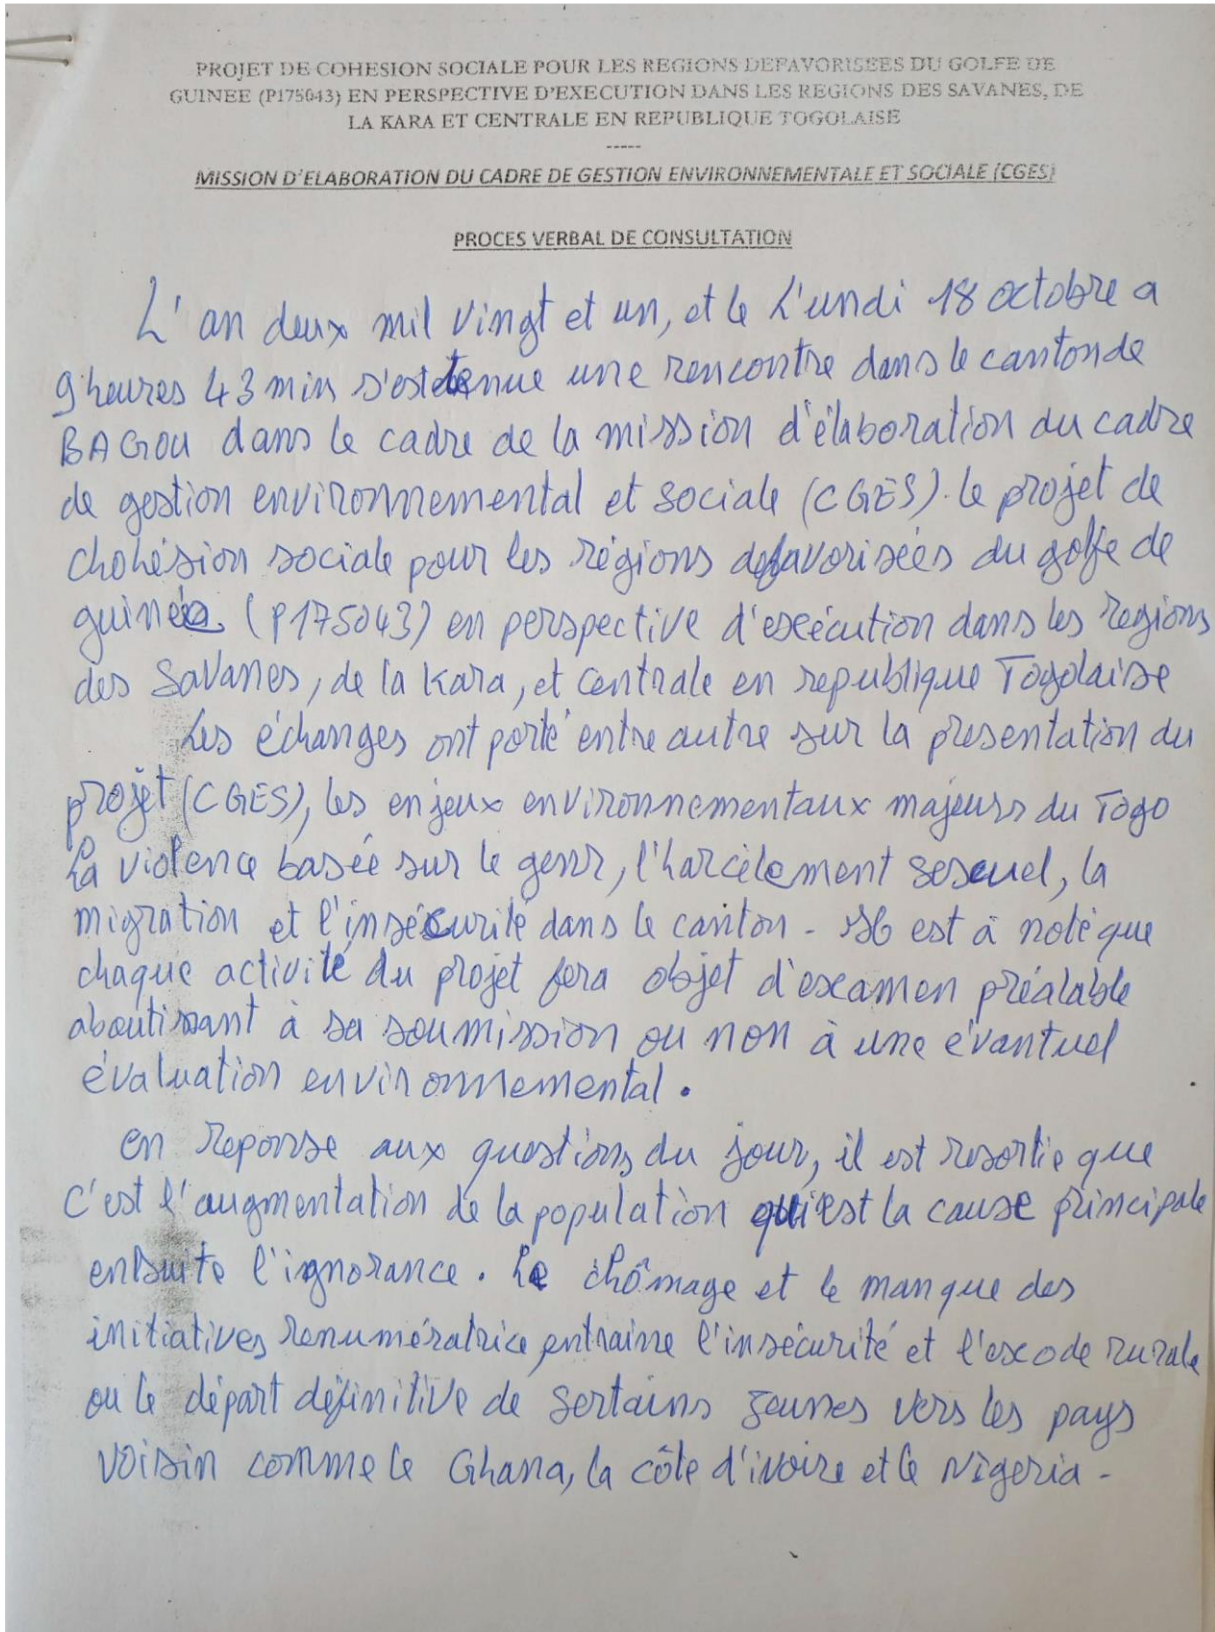 PROJET DE COHESION SOCIALE POUR LES REGIONS DEFAVORISEES DU GOLFE DE
GUINEE (P175043) EN PERSPECTIVE D'EXECUTION DANS LES REGIONS DES SAVANES, DE
LA KARA ET CENTRALE EN REPUBLIQUE TOGOLAISE
-----
MISSION D'ELABORATION DU CADRE DE GESTION ENVIRONNEMENTALE ET SOCIALE (CGES)
PROCES VERBAL DE CONSULTATION
L'an deux mil vingt et un, et le L'undi 18 octobre a
9 heures 43 min s'est tenue une rencontre dans le canton de
BAGOU dans le cadre de la mission d'élaboration du cadre
de gestion environnemental et sociale (CGES). le projet de
chohésion sociale pour les régions defavorisées du golfe de
guinée (P175043) en perspective d'exécution dans les regions
des Savanes, de la Kara, et Centrale en republique Togolaise
Les échanges ont porté entre autre sur la presentation du
projet (CGES), les enjeux environnementaux majeurs du Togo
La violence basée sur le genr, l'harcèlement sexuel, la
migration et l'insécurité dans le canton - Il est à noté que
chaque activité du projet fera objet d'examen préalable
aboutissant à sa soumission ou non à une évantuel
évaluation environnemental.
en reponse aux questions du jour, il est resortie que
C'est l'augmentation de la population qui est la cause principale
ensuite l'ignorance. Le chômage et le manque des
initiatives renumératrice entraine l'insécurité et l'exode rurale
ou le départ définitive de sertains jeunes vers les pays
voisin comme le Ghana, la côte d'ivoire et le Nigeria -